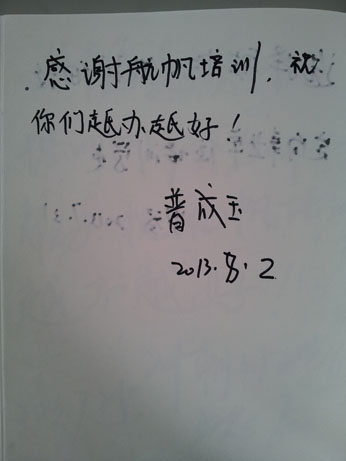 感谢航帆培训,祝
你们越办越好!
普成玉
2013.8.2